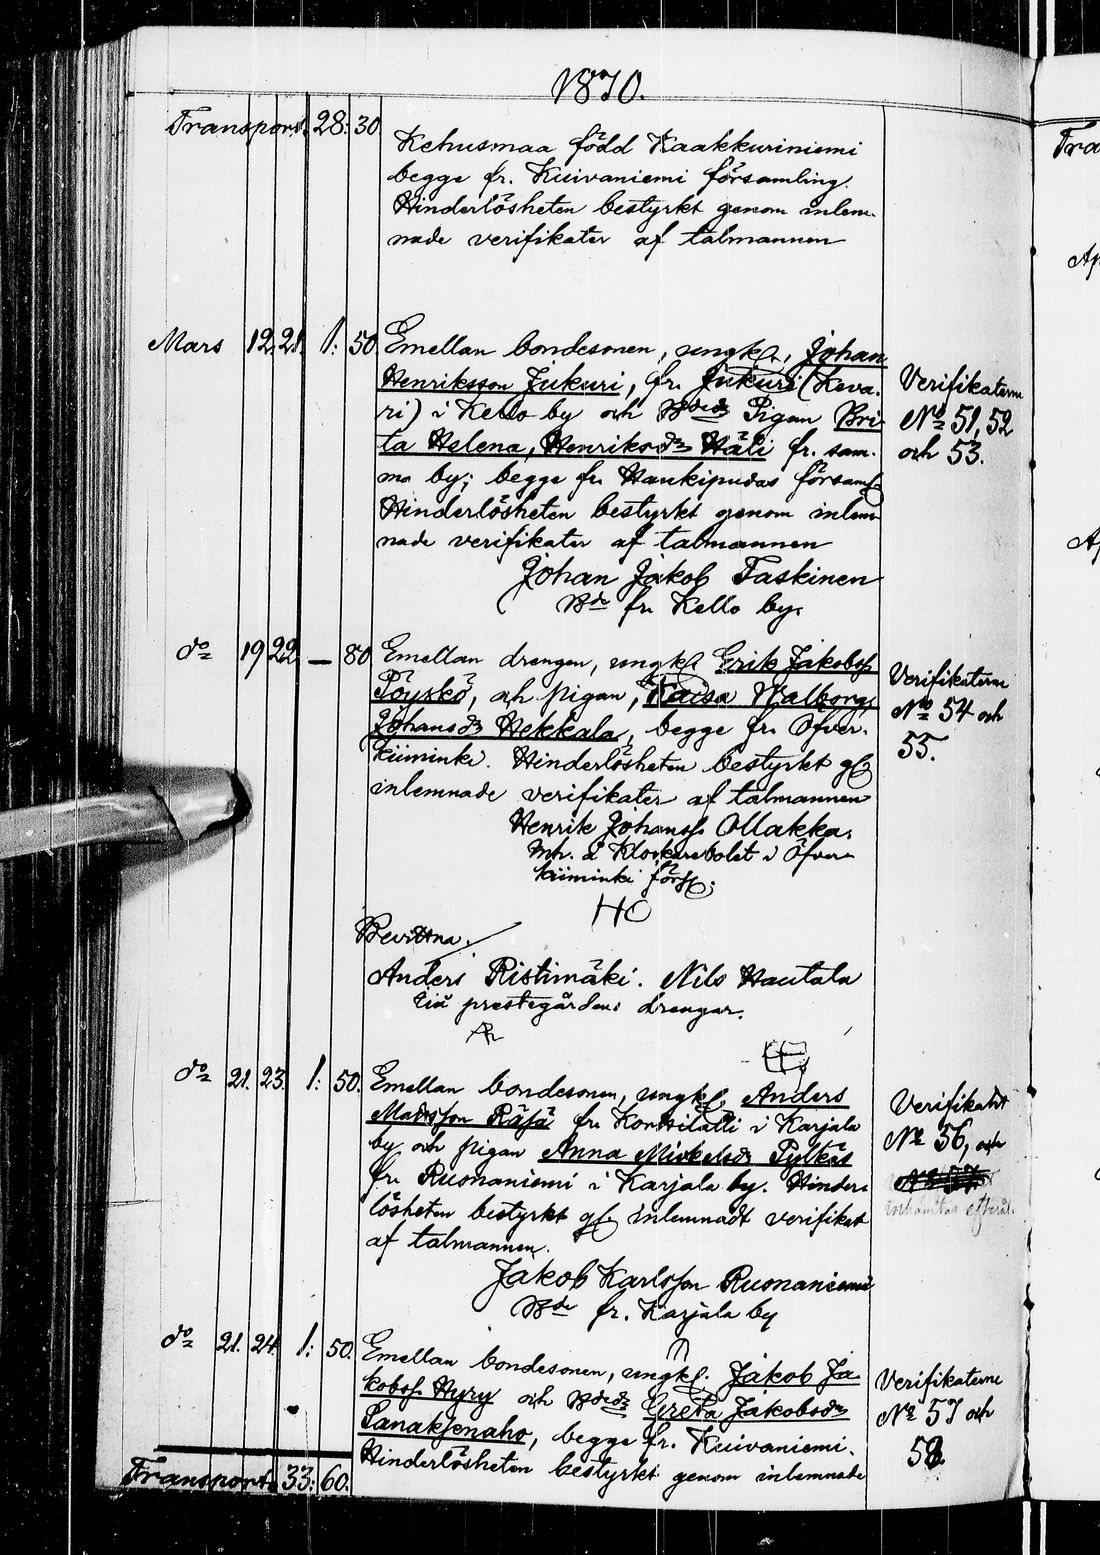 1870.
Transport. 28: 30.
Kehusmaa född Kaakkuriniemi
begge fr. Kuivaniemi församling.
Hinderlösheten bestyrkt genom inlem-
nade verifikater af talmannen
Mars 12. 21. 1: 50. Emellan bondesonen, ungk., Johan
Henriksson Jukuri, fr. Jukuri (Keva-
ri) i Kello by och Bdedr Pigan Bri-
ta Helena, Henriksdr Häli fr. sam-
ma by; begge fr. Haukipudas församl.
Hinderlösheten bestyrkt genom inlem-
nade verifikater af talmannen
Johan Jakob Taskinen
Bde fr. Kello by.
Verifikaterne
No 51, 52
och 53.
do 19 22 — 80 Emellan drengen, ungk. Erik Jakobss.
Pöyskö, och pigan, Kaisa Walborg,
Johansdr Hekkala, begge fr. Öfver-
kiiminki. Hinderlösheten bestyrkt gm
inlemnade verifikater af talmannen
Henrik Johanss. Ollakka,
mh. å Klockarebolet i Öfver-
kiiminki förs.
HO
Verifikaterne
No 54 och
55.
Bevittna.
Anders Ristimäki. Nils Hautala
prestegårdens drengar.
do 21. 23. 1: 50. Emellan bondesonen, ungk. Anders
Matsson Räsä fr. Kontitalli i Karjala
by och pigan Anna Mickelsdr Pylkäs
fr. Ruonaniemi i Karjala by. Hinder-
lösheten bestyrkt gm inlemnadt verifikat
af talmannen.
Jakob Karlsson Ruonaniemi
Bde fr. Karjala by
Verifikatet
No 56, och
No 57
do 21. 24. 1: 50. Emellan bondesonen, ungk. Jakob Ja-
kobss. Hyry och Bdedr Greta Jakobsdr
Sanaksenaho, begge fr. Kuivaniemi.
Hinderlösheten bestyrkt genom inlemnade
Verifikaterne
No 57 och
58.
Transport. 33: 60.